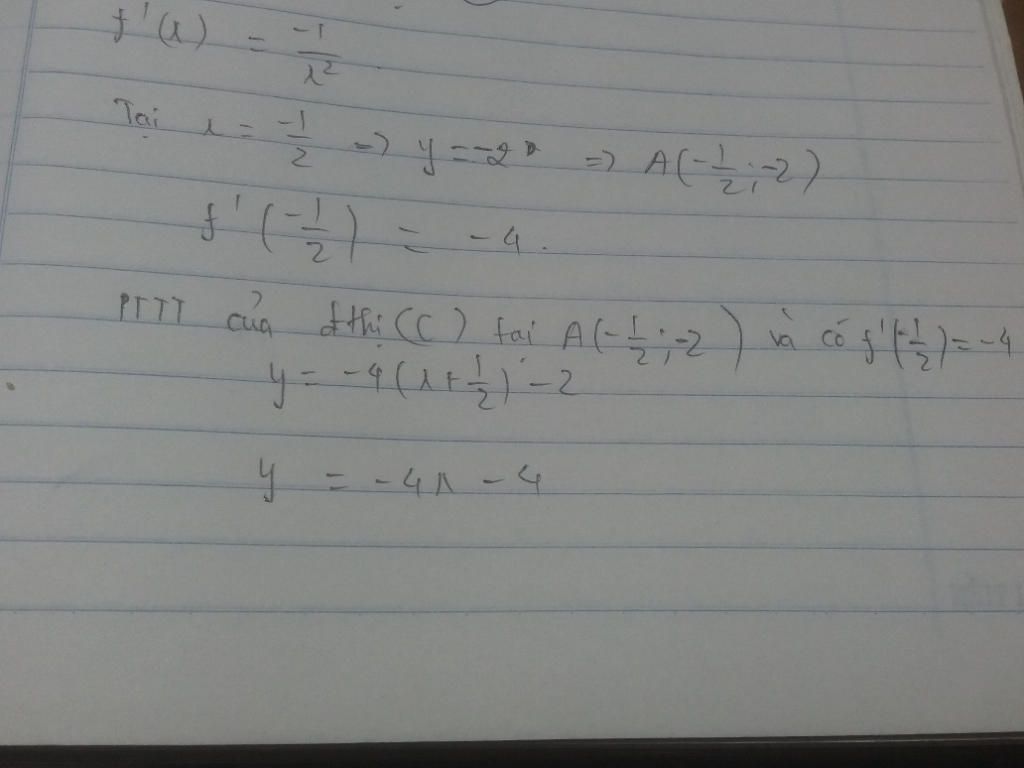 f'(x) = -1/x².
Tại x = -1/2 => y = -2 => A(-1/2; -2)
f'(-1/2) = -4.
PTTT của đthị (C) tại A(-1/2; -2) và có f'(-1/2) = -4
y = -4(x + 1/2) - 2
y = -4x - 4